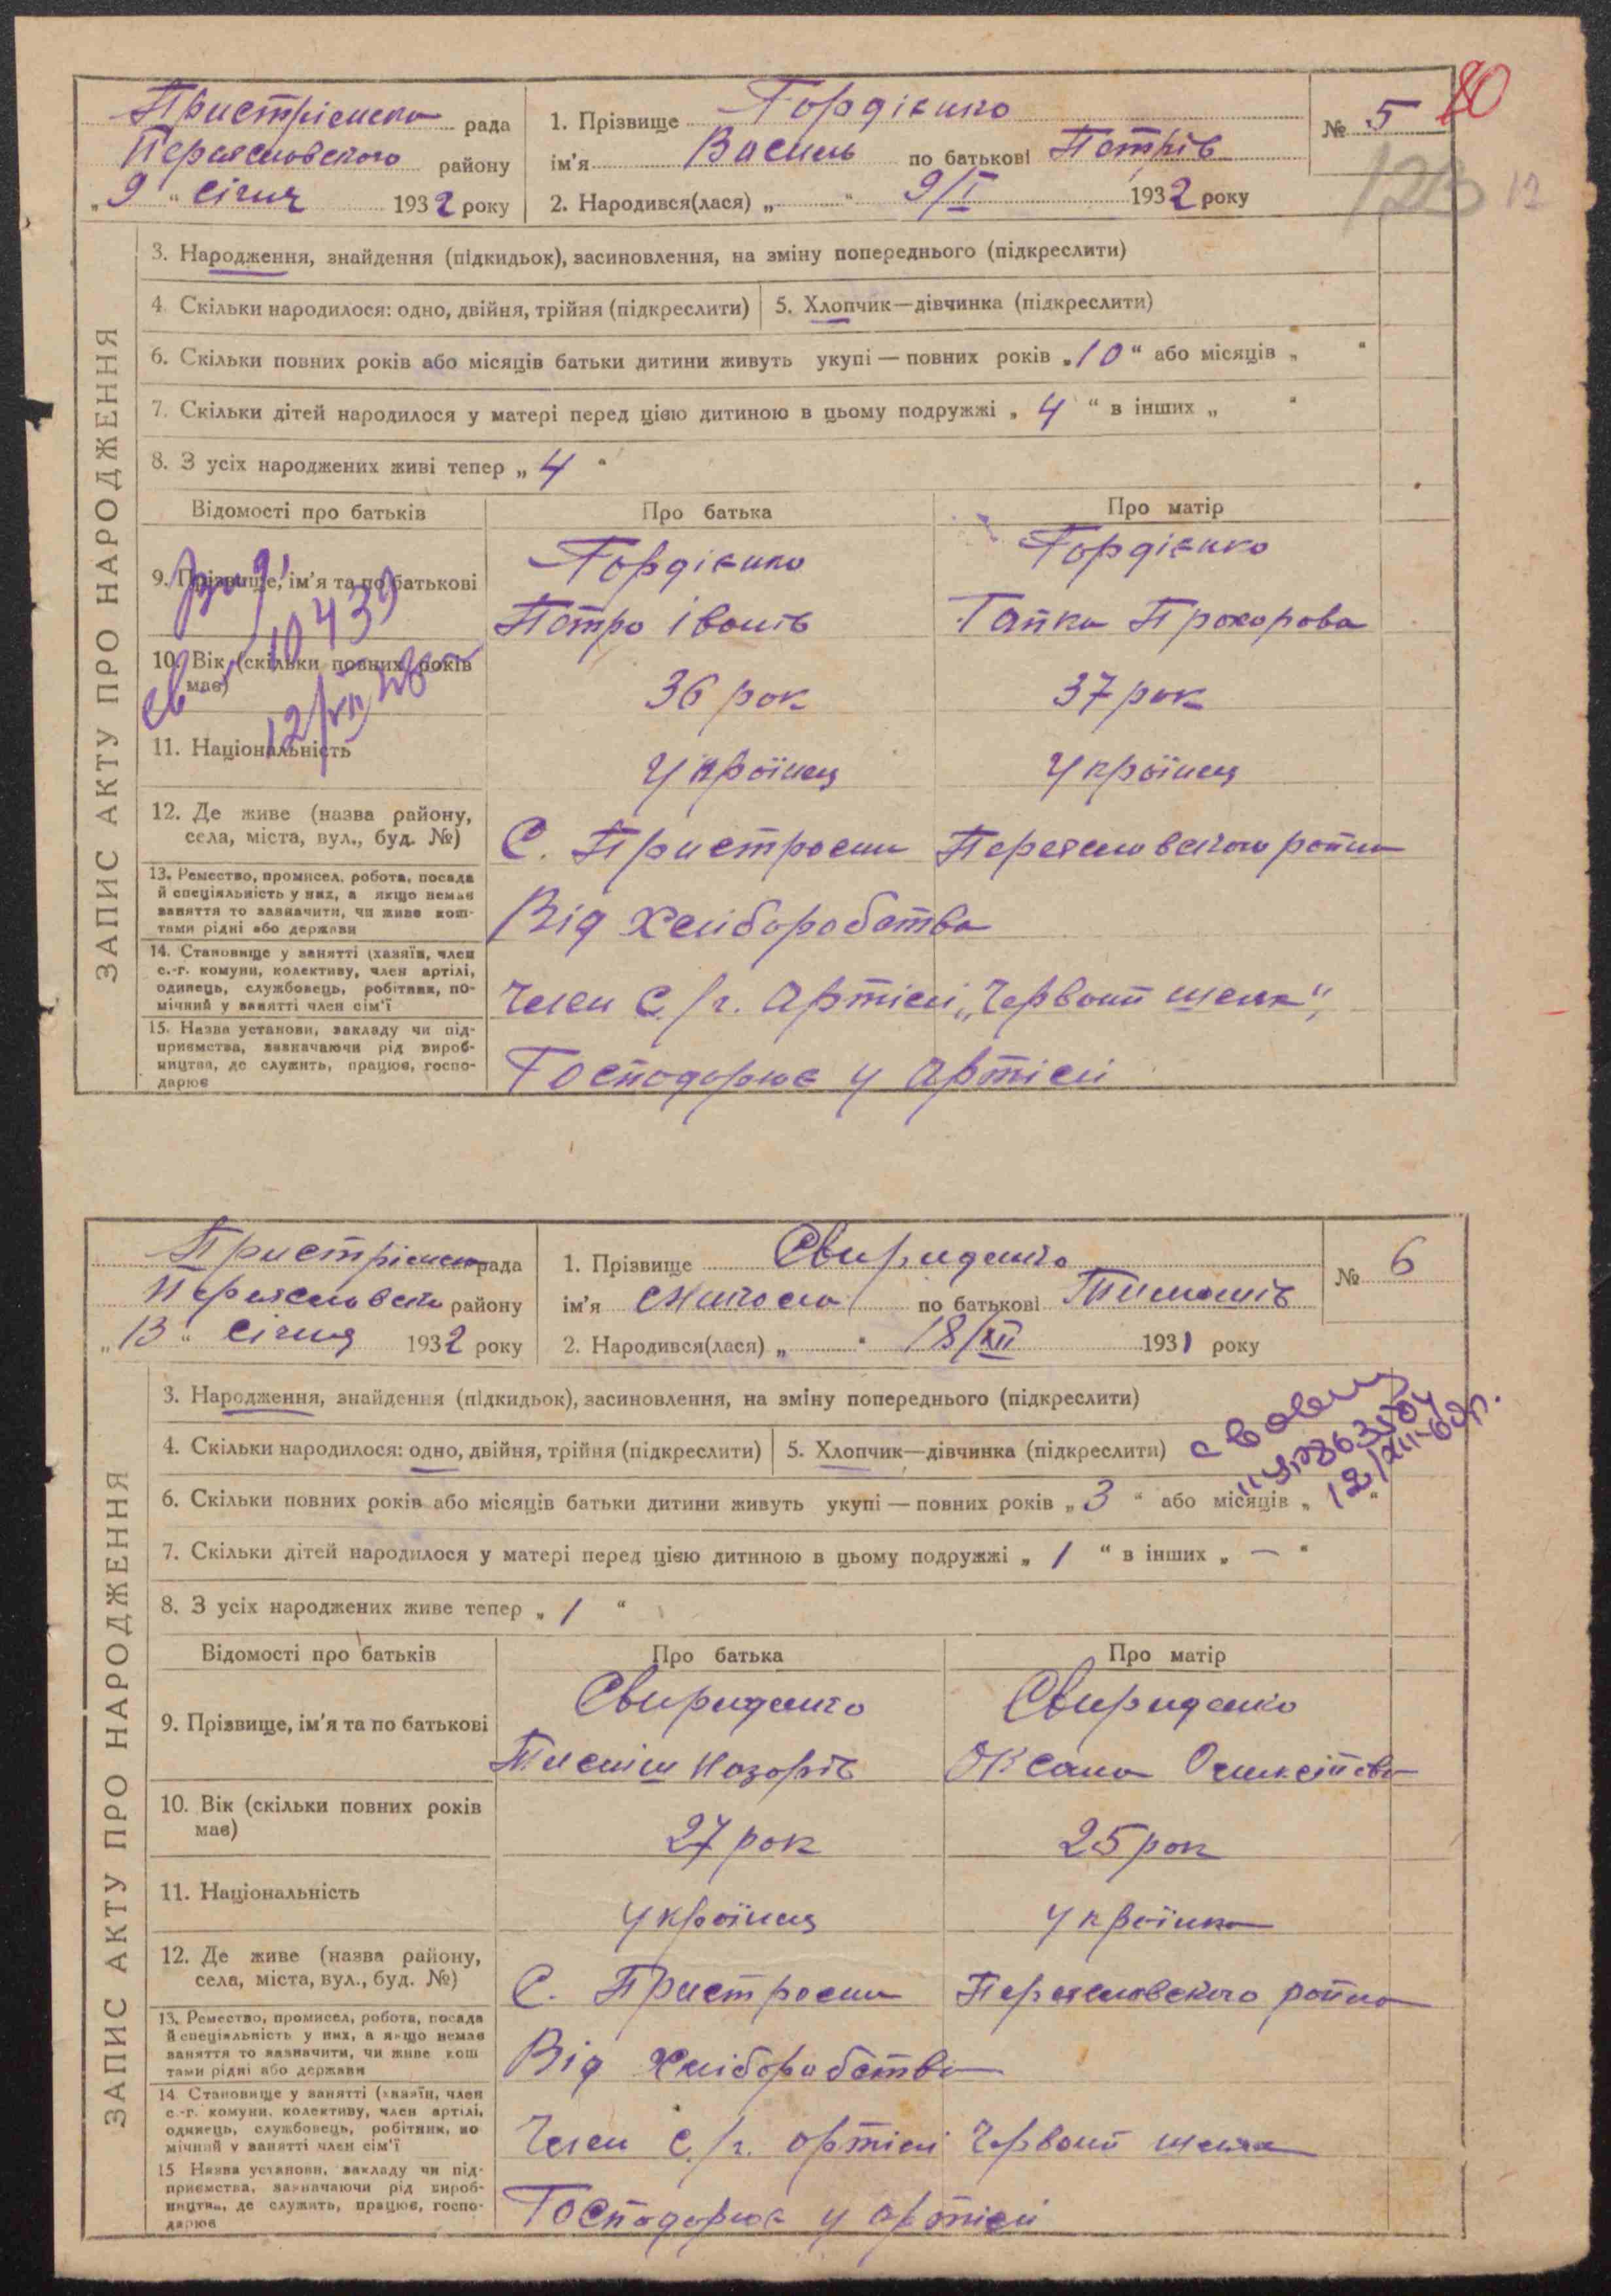 Пристрімська рада
Переяславського району
„9“ січня 1932 року
1. Прізвище Гордієнко
ім'я Василь по батькові Петрів
2. Народився(лася) „ “ 9/I 1932 року
№ 5
80
123
12
ЗАПИС АКТУ ПРО НАРОДЖЕННЯ
3. Народження, знайдення (підкидьок), засиновлення, на зміну попереднього (підкреслити)
4. Скільки народилося: одно, двійня, трійня (підкреслити)
5. Хлопчик—дівчинка (підкреслити)
6. Скільки повних років або місяців батьки дитини живуть укупі — повних років „10“ або місяців „ “
7. Скільки дітей народилося у матері перед цією дитиною в цьому подружжі „4“ в інших „ “
8. З усіх народжених живі тепер „4“
Відомості про батьків
Про батька
Про матір
9. Прізвище, ім'я та по батькові
Гордієнко
Петро Іванів
Гордієнко
Гапка Прохорова
10. Вік (скільки повних років має)
36 рок
37 рок
11. Національність
Українец
Українец
12. Де живе (назва району,
села, міста, вул., буд. №)
С. Пристроми Переяславського района
13. Ремество, промисел, робота, посада
й спеціяльність у них, а якщо немає
заняття то зазначити, чи живе кош-
тами рідні або держави
Від хліборобства
14. Становище у занятті (хазяїн, член
с.-г. комуни, колективу, член артілі,
одинець, службовець, робітник, по-
мічний у занятті член сім'ї
Член с/г. артілі „Червоний шлях“,
15. Назва установи, закладу чи під-
приємства, зазначаючи рід вироб-
ництва, де служить, працює, госпо-
дарює
Господорює у артілі
Пристрімська рада
Переяславсько району
„13“ січня 1932 року
1. Прізвище Свириденко
ім'я Микола по батькові Тимошів
2. Народився(лася) „ “ 18/XII 1931 року
№ 6
ЗАПИС АКТУ ПРО НАРОДЖЕННЯ
3. Народження, знайдення (підкидьок), засиновлення, на зміну попереднього (підкреслити)
4. Скільки народилося: одно, двійня, трійня (підкреслити)
5. Хлопчик—дівчинка (підкреслити)
6. Скільки повних років або місяців батьки дитини живуть укупі — повних років „3“ або місяців „ “
7. Скільки дітей народилося у матері перед цією дитиною в цьому подружжі „1“ в інших „—“
8. З усіх народжених живе тепер „1“
Відомості про батьків
Про батька
Про матір
9. Прізвище, ім'я та по батькові
Свириденко
Тиміш Назорів
Свириденко
Оксана
10. Вік (скільки повних років
має)
27 рок
25 рок
11. Національність
Українец
Українка
12. Де живе (назва району,
села, міста, вул., буд. №)
С. Пристроми Переяславського района
13. Ремество, промисел, робота, посада
й спеціяльність у них, а якщо немає
заняття то зазначити, чи живе кош
тами рідні або держави
Від хліборобства
14. Становище у занятті (хазяїн, член
с.-г. комуни, колективу, член артілі,
одинець, службовець, робітник, по
мічний у занятті член сім'ї
Член с/г. артілі Червоний шлях
15 Назва установи, закладу чи під-
приємства, зазначаючи рід вироб-
ництва, де служить, працює, госпо-
дарює
Господорює у артілі